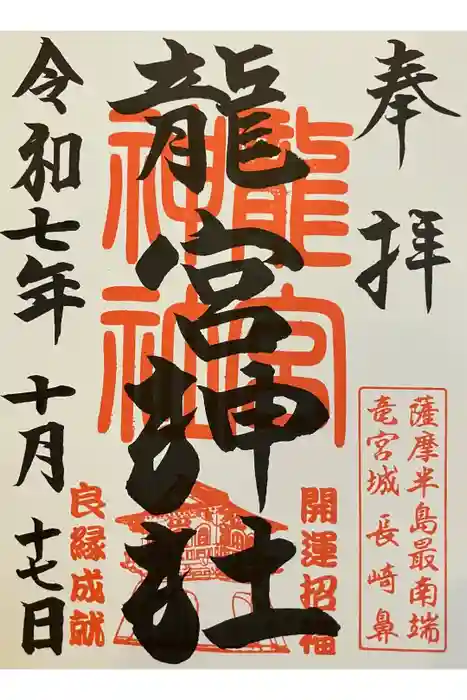 奉拝
薩摩半島最南端
竜宮城 長崎鼻
開運招福
龍宮神社
龍宮神社
良縁成就
令和七年 十月 十七日